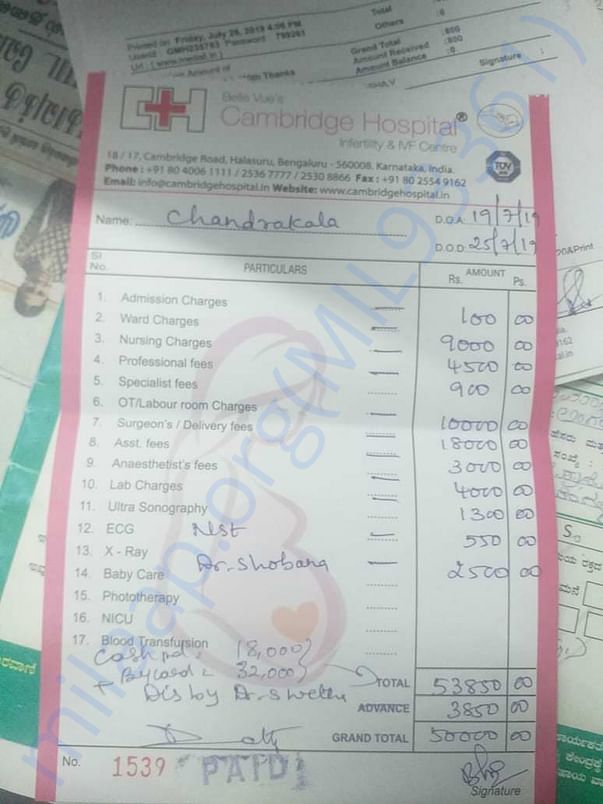 Printed on Friday, July 26, 2019 4:06 PM
Total
Others
Grand Total :800
Amount Received :800
Amount Balance :0
Signature :
Belle Vue's
Cambridge Hospital®
Infertility & IVF Centre
18 / 17, Cambridge Road, Halasuru, Bengaluru - 560008. Karnataka, India.
Phone : +91 80 4006 1111 / 2536 7777 / 2530 8866 Fax : +91 80 2554 9162
Email: info@cambridgehospital.in Website: www.cambridgehospital.in
TÜV
Name: Chandrakala D.O.A. 19/7/19
D.O.D. 25/7/19
Sl No. PARTICULARS AMOUNT Rs. Ps.
1. Admission Charges 100 00
2. Ward Charges 9000 00
3. Nursing Charges 4500 00
4. Professional fees 900 00
5. Specialist fees
6. OT/Labour room Charges 10000 00
7. Surgeon's / Delivery fees 18000 00
8. Asst. fees 3000 00
9. Anaesthetist's fees 4000 00
10. Lab Charges 1300 00
11. Ultra Sonography
12. ECG NST 550 00
13. X - Ray
14. Baby Care Dr. Shobana 2500 00
15. Phototherapy
16. NICU
17. Blood Transfursion
Cash pd = 18,000
By card = 32,000
+ Dis by Dr. Swetha
TOTAL 53850 00
ADVANCE 3850 00
GRAND TOTAL 50000 00
No. 1539 PAID
Signature
milaap.org(MIL93361)